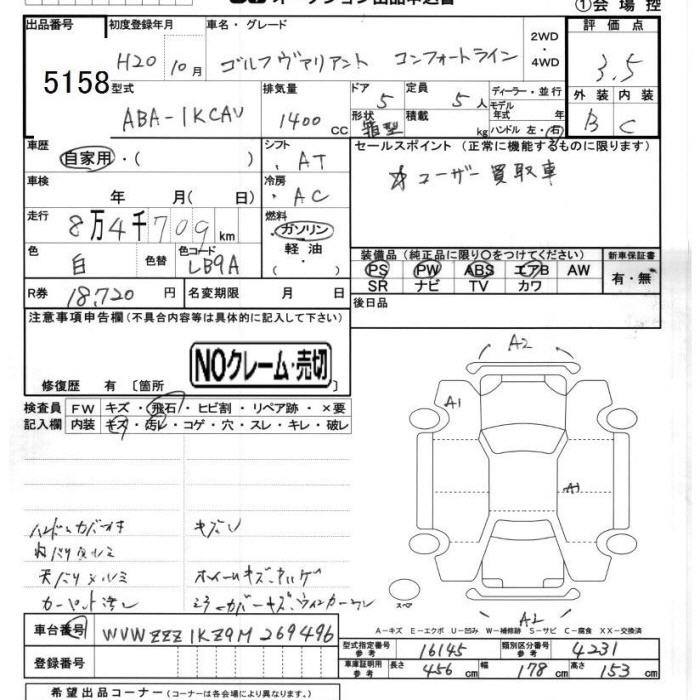 ①会場控
出品番号 初度登録年月 車名・グレード 2WD・4WD 評価点
5158 H20 10月 ゴルフヴァリアント コンフォートライン 3.5
型式 排気量 ドア 定員 ディーラー・並行 外装 内装
ABA-1KCAV 1400cc 5 5人 モデル年式 年 B C
形状 箱型 積載 kg ハンドル 左・右
車歴 自家用・( ) シフト ・AT セールスポイント (正常に機能するものに限ります)
車検 年 月( 日) 冷房 ・AC ☆ユーザー買取車
走行 8万4千709km 燃料 ガソリン・軽油・( )
色 白 色替 色コード LB9A 装備品 (純正品に限り○をつけてください) 新車保証書
PS PW ABS エアB AW 有・無
SR ナビ TV カワ
R券 18,720円 名変期限 月 日 後日品
注意事項申告欄(不具合内容等は具体的に記入して下さい)
NOクレーム・売切
修復歴 有〔箇所 〕
検査員 FW キズ・飛石・ヒビ割・リペア跡・×要
記入欄 内装 キズ・汚レ・コゲ・穴・スレ・キレ・破レ
A2
A1
A1
A2
スペア
カーペット汚レ
A-キズ E-エクボ U-凹み W-補修跡 S-サビ C-腐食 XX-交換済
車台番号 WVWZZZ1KZ9M269496
型式指定番号 参考 16145 類別区分番号 参考 4231
登録番号 車庫証明用 参考 長さ 456cm 幅 178cm 高さ 153cm
希望出品コーナー (コーナーは各会場により異なります。)